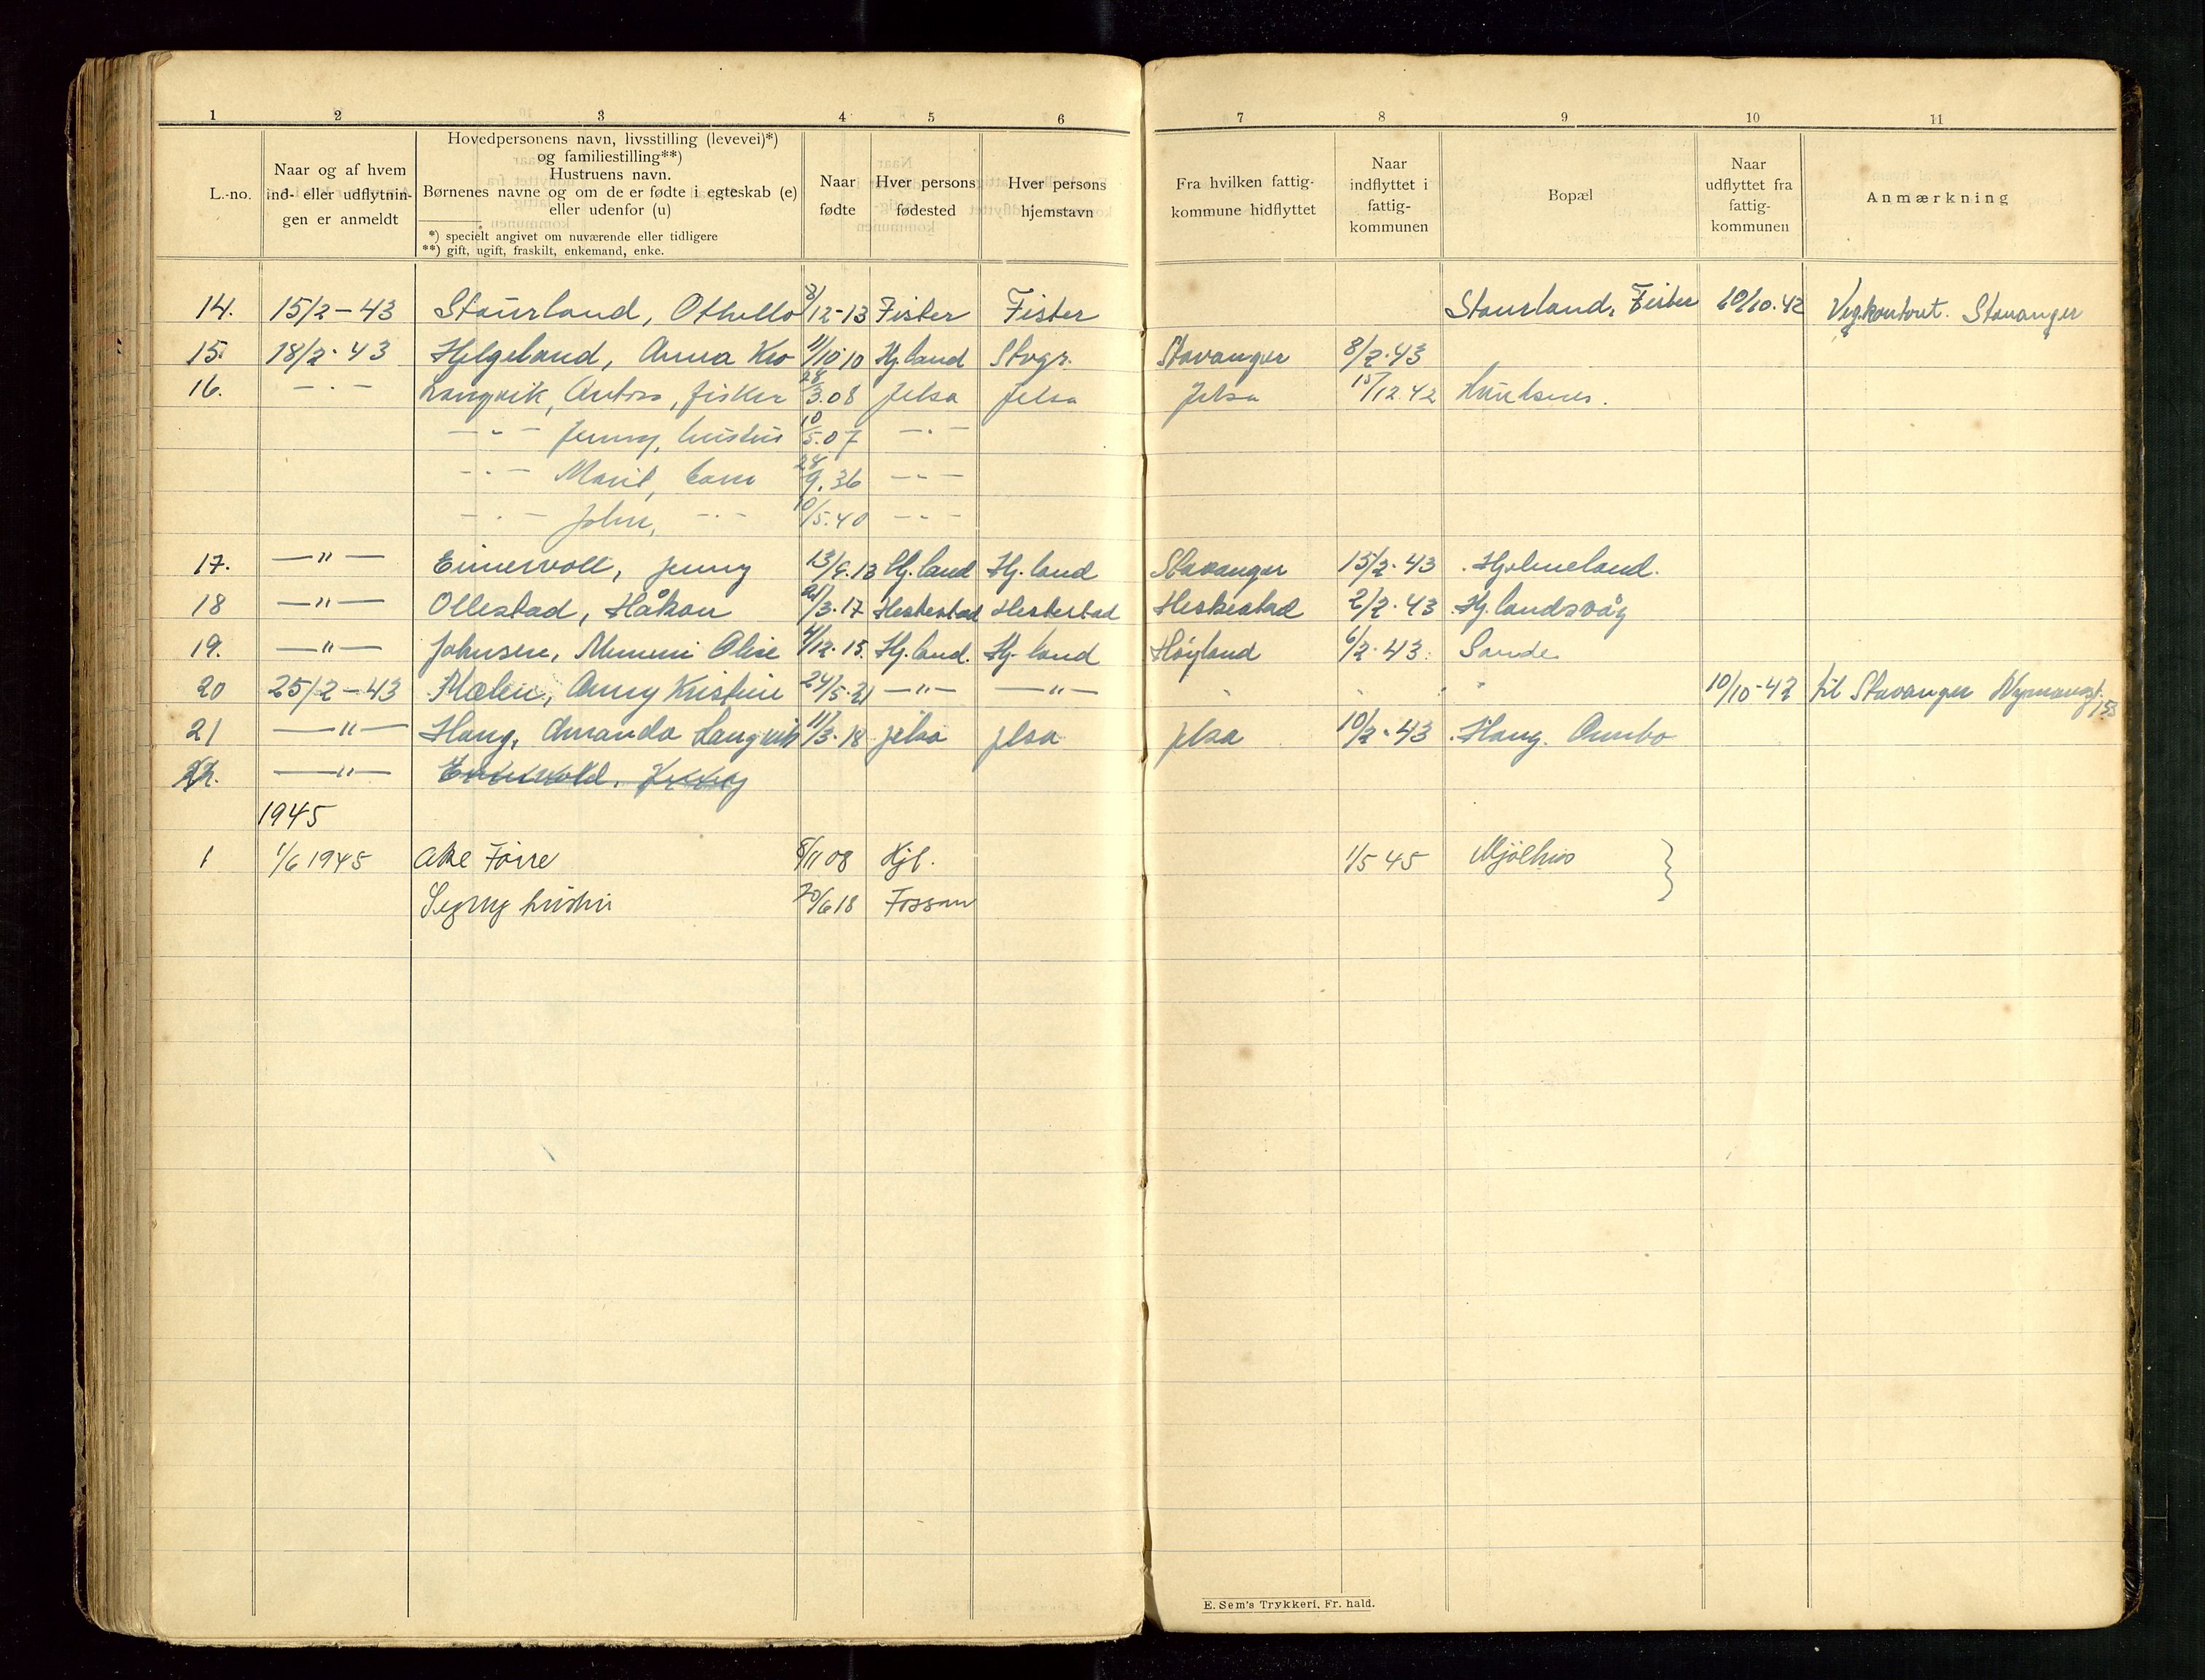 1 2 3 4 5 6 7 8 9 10 11
L.-no.
Naar og af hvem
ind- eller udflytnin-
gen er anmeldt
Hovedpersonens navn, livsstilling (levevei)*)
og familiestilling**)
Hustruens navn.
Børnenes navne og om de er fødte i egteskab (e)
eller udenfor (u)
*) specielt angivet om nuværende eller tidligere
**) gift, ugift, fraskilt, enkemand, enke.
Naar
fødte
Hver persons
fødested
Hver persons
hjemstavn
Fra hvilken fattig-
kommune hidflyttet
Naar
indflyttet i
fattig-
kommunen
Bopæl
Naar
udflyttet fra
fattig-
kommunen
Anmærkning
14. 15/2-43 Staurland, Othello 3/12-13 Fister Fister Staurland, Fister 10/10.42 Vegkontoret. Stavanger
15. 18/2.43 Helgeland, Anna Kro 11/10.10 Hj.land Stvgr. Stavanger 8/2.43
16. — . — Langvik, Anton, fisker 28/3.08 Jelsa Jelsa Jelsa 15/12.42 Hundsnes.
— " — Jenny, hustru 10/5.07 — " —
— " — Marit, barn 28/9.36 — " —
— " — John, — " — 10/5.40 — " —
17. — " — Einervoll, Jenny 13/9.13 Hj.land Hj.land Stavanger 15/2.43 Hjelmeland.
18 — " — Ollestad, Håkon 21/3.17 Heskestad Heskestad Heskestad 2/2.43 Hj.landsvåg
19. — " — Johnsen, Mimmi Olise 4/12.15. Hj.land. Hj.land Høyland 6/2.43. Sande
20 25/2-43 Mælen, Anny Kristine 24/5.21 — " — — " — 10/10-42 til Stavanger Nymansgt. 153
21 — " — Haug, Amanda Langvik 11/3.18 Jelsa Jelsa Jelsa 10/2.43 Haug. Ombo
22. — " — Einervold, Jenny
1945
1 1/6 1945 Åke Førre 8/11 08 Hjl. 1/5 45 Mjølhus }
Signy hustru 20/6 18 Fossan
E. Sem's Trykkeri, Fr. hald.